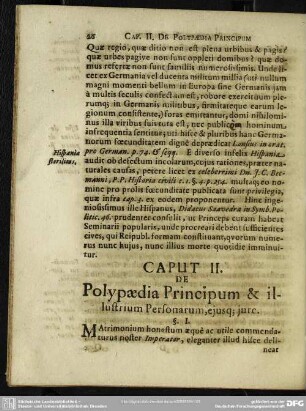 26 CAP. II. DE POLYPÆDIA PRINCIPUM
Quæ regio, quæ ditio non est plena urbibus & pagis?
quæ urbes pagive non sunt oppleti domibus? quæ do-
mus refertæ non sunt familiis numerosissimis. Unde li-
cet ex Germania vel ducenta militum millia (uti nullum
magni momenti bellum in Europa sine Germanis jam
à multis seculis confectum est, robore exercituum ple-
rumq; in Germanis militibus, firmitareque earum le-
gionum consistente,) foras emittantur, domi nihilomi-
nus illa viribus suis est, nec publicum hominum
infrequentia sentitur; uti hisce & pluribus hanc Germa-
norum fœcunditatem digne deprædicat Lansius in orat.
pro German. p. 74. & seqq. E diverso infelix Hispania
audit ob defectum incolarum, cujus rationes, præter na-
turales causas, petere licet ex celeberrimi Dn. J. C. Bec-
manni, P.P. Historia orbis t. 1. §. 4. p. 254. multaq; eo no-
mine pro prolis fœcunditate publicata sunt privilegia,
quæ infra cap. 5. ex eodem proponentur. Hinc inge-
niosissimus ille Hispanus, Didacus Saavedra in Symb. Po-
litic. 46. prudenter consulit, ut Princeps curam habeat
Seminarii popularis, unde procreari debent sufficientes
cives, qui Reipubl. formam constituant, quorum nume-
rus nunc hujus, nunc illius morte quotidie imminui-
tur.
Hispania
sterilitas,
CAPUT II.
DE
Polypædia Principum & il-
lustrium Personarum, ejusq; jure.
§. I.
MAtrimonium honestum æquè ac utile commenda-
turus noster Imperator, eleganter illud hisce deli-
neat